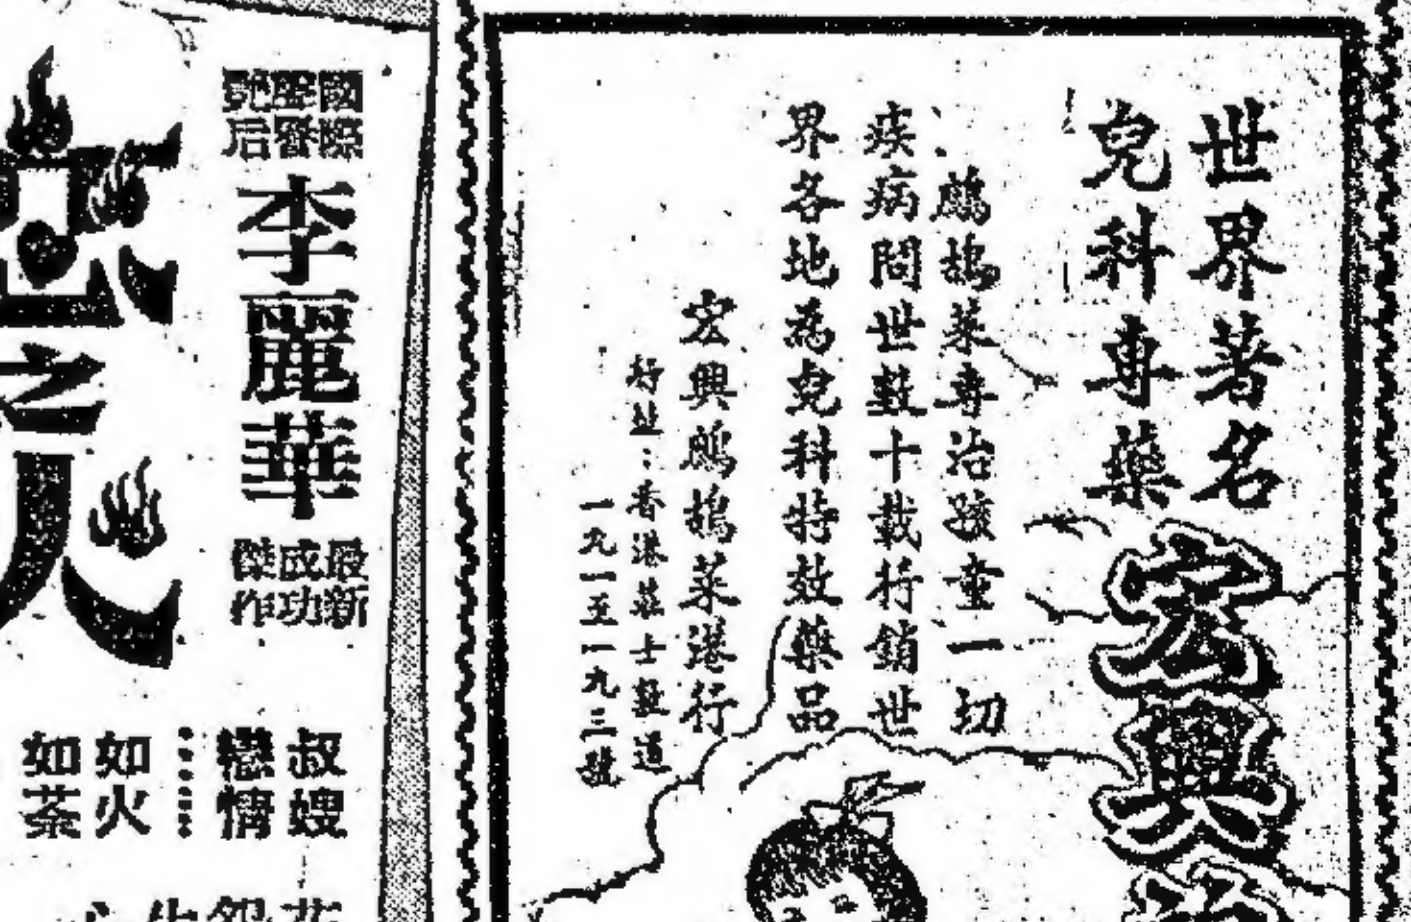 世界著名
兒科專藥
宏興
鷓鴣菜專治孩童一切
疾病問世數十載行銷世
界各地為兒科特效藥品
宏興鷓鴣菜港行
行址：香港莊士敦道
一九一至一九三號
國際
聲譽
艷后
李麗華
最新
成功
傑作
之人
叔嫂
戀情
……
如火
如荼